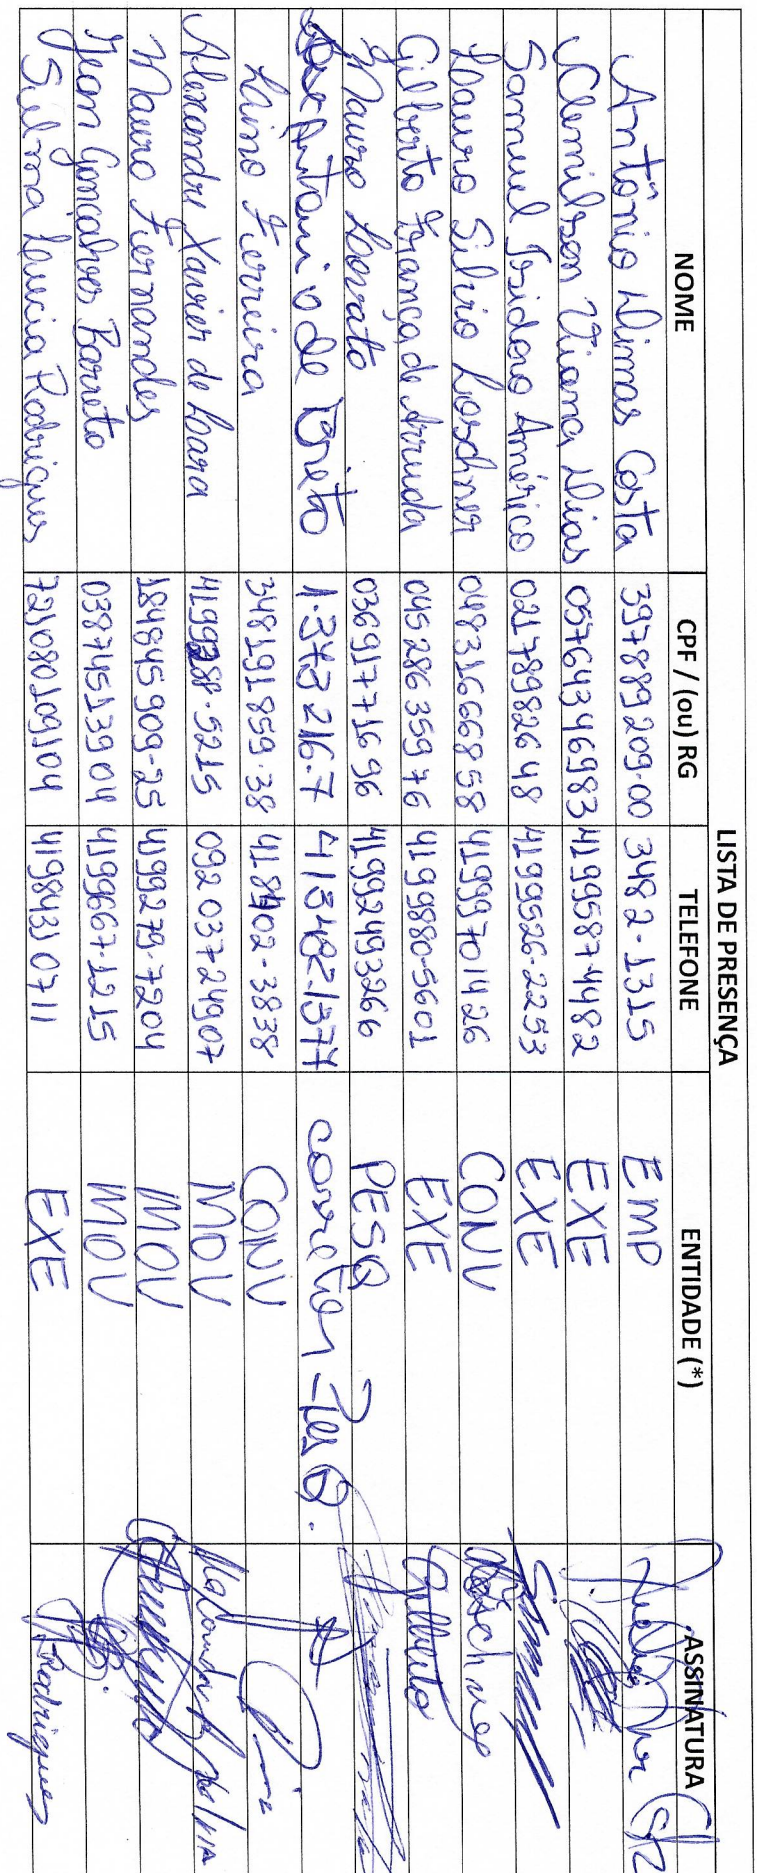 LISTA DE PRESENÇA
NOME CPF / (ou) RG TELEFONE ENTIDADE (*) ASSINATURA
Antônio Dimas Costa 397889209-00 3482-1315 EMP
Clemilson Viana Dias 05764346983 4199587-4482 EXE
Samuel Isidoro Américo 02178982648 4199526-2253 EXE
Lauro Silvio Loschner 04831666858 41999701426 CONV Löschner
Gilberto França de Arruda 04528635976 4199880-5601 EXE Gilberto
Mauro Lovato 03691771696 41992493266 PESQ
Antonio de Brito 1.343216.7 413482-1574 corretor - PesQ.
Laino Ferreira 348191859-38 418402-3838 CONV
Alexandre Xavier de Loara 4199288-5215 09203724907 MOV
Mauro Fernandes 184845909-25 4199279-7204 MOV
Jean Gonçalves Barreto 03874513904 4199667-1215 MOV
Selma Lucia Rodrigues 721080109104 41984310711 EXE Rodrigues